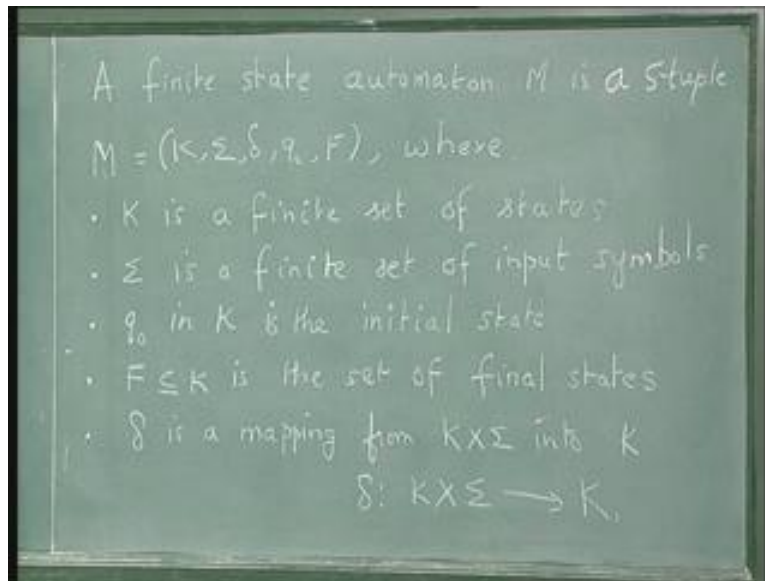 A finite state automaton M is a 5tuple
M = (K, Σ, δ, q₀, F), where
• K is a finite set of states
• Σ is a finite set of input symbols
• q₀ in K is the initial state
• F ⊆ K is the set of final states
• δ is a mapping from K X Σ into K
δ: K X Σ → K,